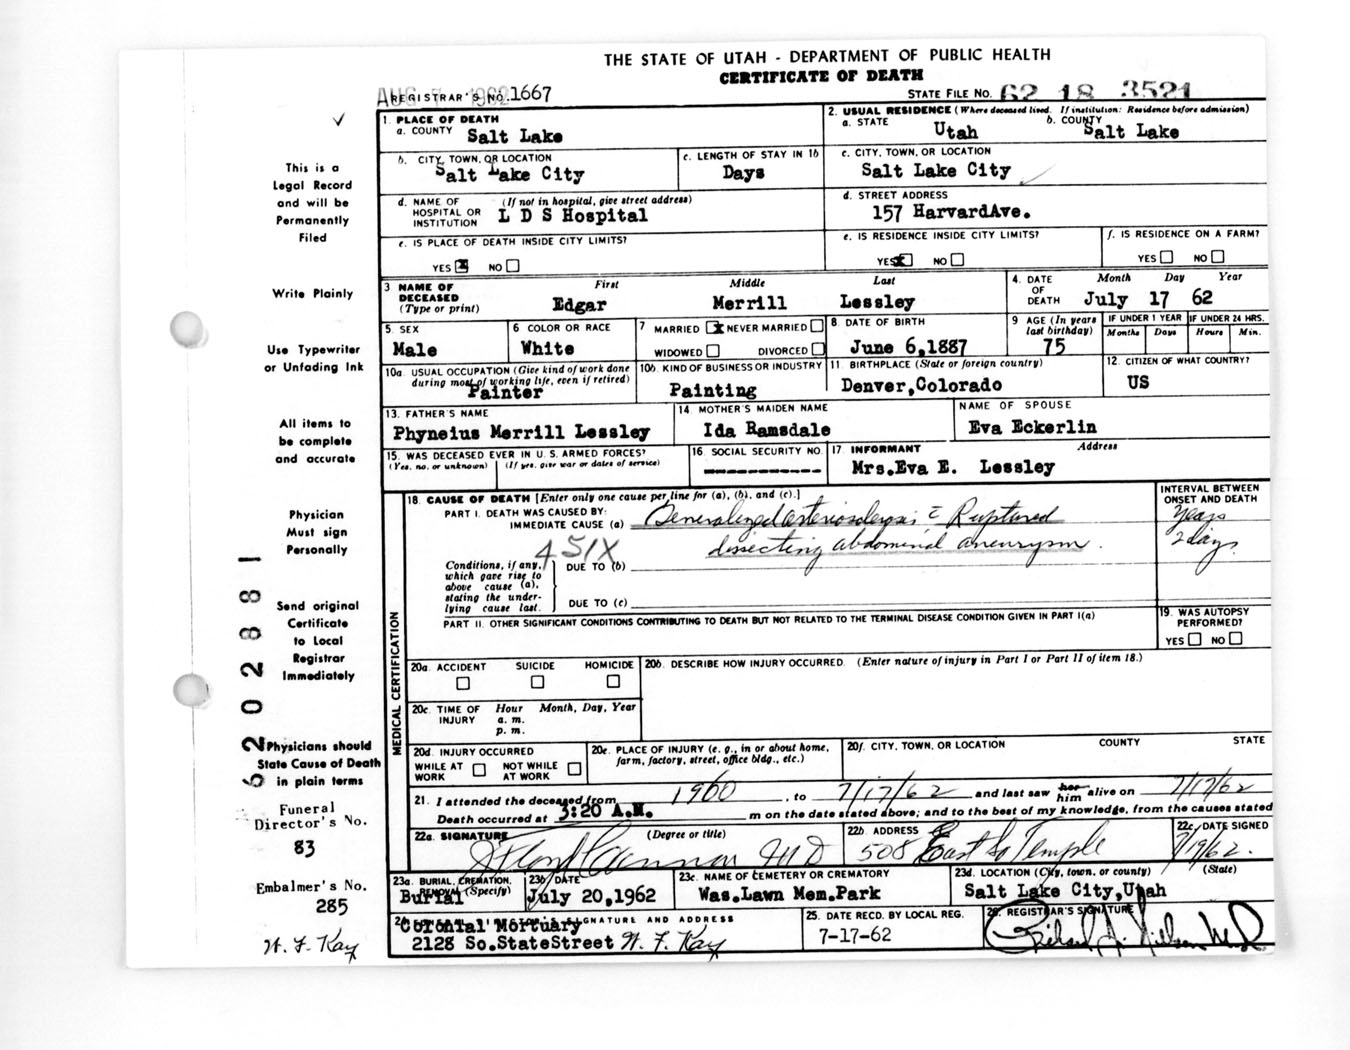 THE STATE OF UTAH - DEPARTMENT OF PUBLIC HEALTH
CERTIFICATE OF DEATH
REGISTRAR'S NO. 1667
STATE FILE NO. 62 18 3521
1. PLACE OF DEATH
a. COUNTY Salt Lake
2. USUAL RESIDENCE (Where deceased lived. If institution: Residence before admission)
a. STATE Utah b. COUNTY Salt Lake
b. CITY, TOWN, OR LOCATION Salt Lake City
c. LENGTH OF STAY IN 1b Days
c. CITY, TOWN, OR LOCATION Salt Lake City
d. NAME OF HOSPITAL OR INSTITUTION (If not in hospital, give street address) L D S Hospital
d. STREET ADDRESS 157 HarvardAve.
e. IS PLACE OF DEATH INSIDE CITY LIMITS? YES NO
e. IS RESIDENCE INSIDE CITY LIMITS? YES NO
f. IS RESIDENCE ON A FARM? YES NO
3 NAME OF DECEASED (Type or print) First Middle Last
Edgar Merrill Lessley
4. DATE OF DEATH Month Day Year
July 17 62
5. SEX Male
6 COLOR OR RACE White
7 MARRIED NEVER MARRIED
WIDOWED DIVORCED
8. DATE OF BIRTH June 6,1887
9 AGE (In years last birthday) 75
IF UNDER 1 YEAR Months Days
IF UNDER 24 HRS. Hours Min.
10a. USUAL OCCUPATION (Give kind of work done during most of working life, even if retired) Painter
10b. KIND OF BUSINESS OR INDUSTRY Painting
11. BIRTHPLACE (State or foreign country) Denver,Colorado
12. CITIZEN OF WHAT COUNTRY? US
13. FATHER'S NAME Phyneius Merrill Lessley
14. MOTHER'S MAIDEN NAME Ida Ramsdale
NAME OF SPOUSE Eva Eckerlin
15. WAS DECEASED EVER IN U.S. ARMED FORCES?
(Yes, no, or unknown) (If yes, give war or dates of service)
16. SOCIAL SECURITY NO. ------------
17. INFORMANT Address
Mrs.Eva E. Lessley
MEDICAL CERTIFICATION
18. CAUSE OF DEATH [Enter only one cause per line for (a), (b), and (c).]
INTERVAL BETWEEN ONSET AND DEATH
PART I. DEATH WAS CAUSED BY:
IMMEDIATE CAUSE (a) Generalized arteriosclerosis c̄ Ruptured Years
dissecting abdominal aneurysm. 2 days.
451X
Conditions, if any, which gave rise to above cause (a), stating the underlying cause last.
DUE TO (b)
DUE TO (c)
PART II. OTHER SIGNIFICANT CONDITIONS CONTRIBUTING TO DEATH BUT NOT RELATED TO THE TERMINAL DISEASE CONDITION GIVEN IN PART I(a)
19. WAS AUTOPSY PERFORMED? YES NO
20a. ACCIDENT SUICIDE HOMICIDE
20b. DESCRIBE HOW INJURY OCCURRED. (Enter nature of injury in Part I or Part II of item 18.)
20c. TIME OF INJURY Hour Month, Day, Year
a. m.
p. m.
20d. INJURY OCCURRED
WHILE AT WORK NOT WHILE AT WORK
20e. PLACE OF INJURY (e. g., in or about home, farm, factory, street, office bldg., etc.)
20f. CITY, TOWN, OR LOCATION COUNTY STATE
21. I attended the deceased from 1960, to 7/17/62 and last saw her him alive on 7/17/62
Death occurred at 3:20 A.M. m on the date stated above; and to the best of my knowledge, from the causes stated
22a. SIGNATURE (Degree or title) J Floyd Cannon MD
22b. ADDRESS 508 East So Temple
22c. DATE SIGNED 7/19/62.
23a. BURIAL, CREMATION, REMOVAL (Specify) Burial
23b DATE July 20,1962
23c. NAME OF CEMETERY OR CREMATORY Was.Lawn Mem.Park
23d. LOCATION (City, town, or county) (State)
Salt Lake City,Utah
24. SIGNATURE AND ADDRESS
Colonial Mortuary
2128 So.StateStreet W. F. Kay
25. DATE RECD. BY LOCAL REG. 7-17-62
26. REGISTRAR'S SIGNATURE
This is a
Legal Record
and will be
Permanently
Filed
Write Plainly
Use Typewriter
or Unfading Ink
All items to
be complete
and accurate
Physician
Must sign
Personally
Send original
Certificate
to Local
Registrar
Immediately
Physicians should
State Cause of Death
in plain terms
Funeral
Director's No.
83
Embalmer's No.
285
W. F. Kay
6202881